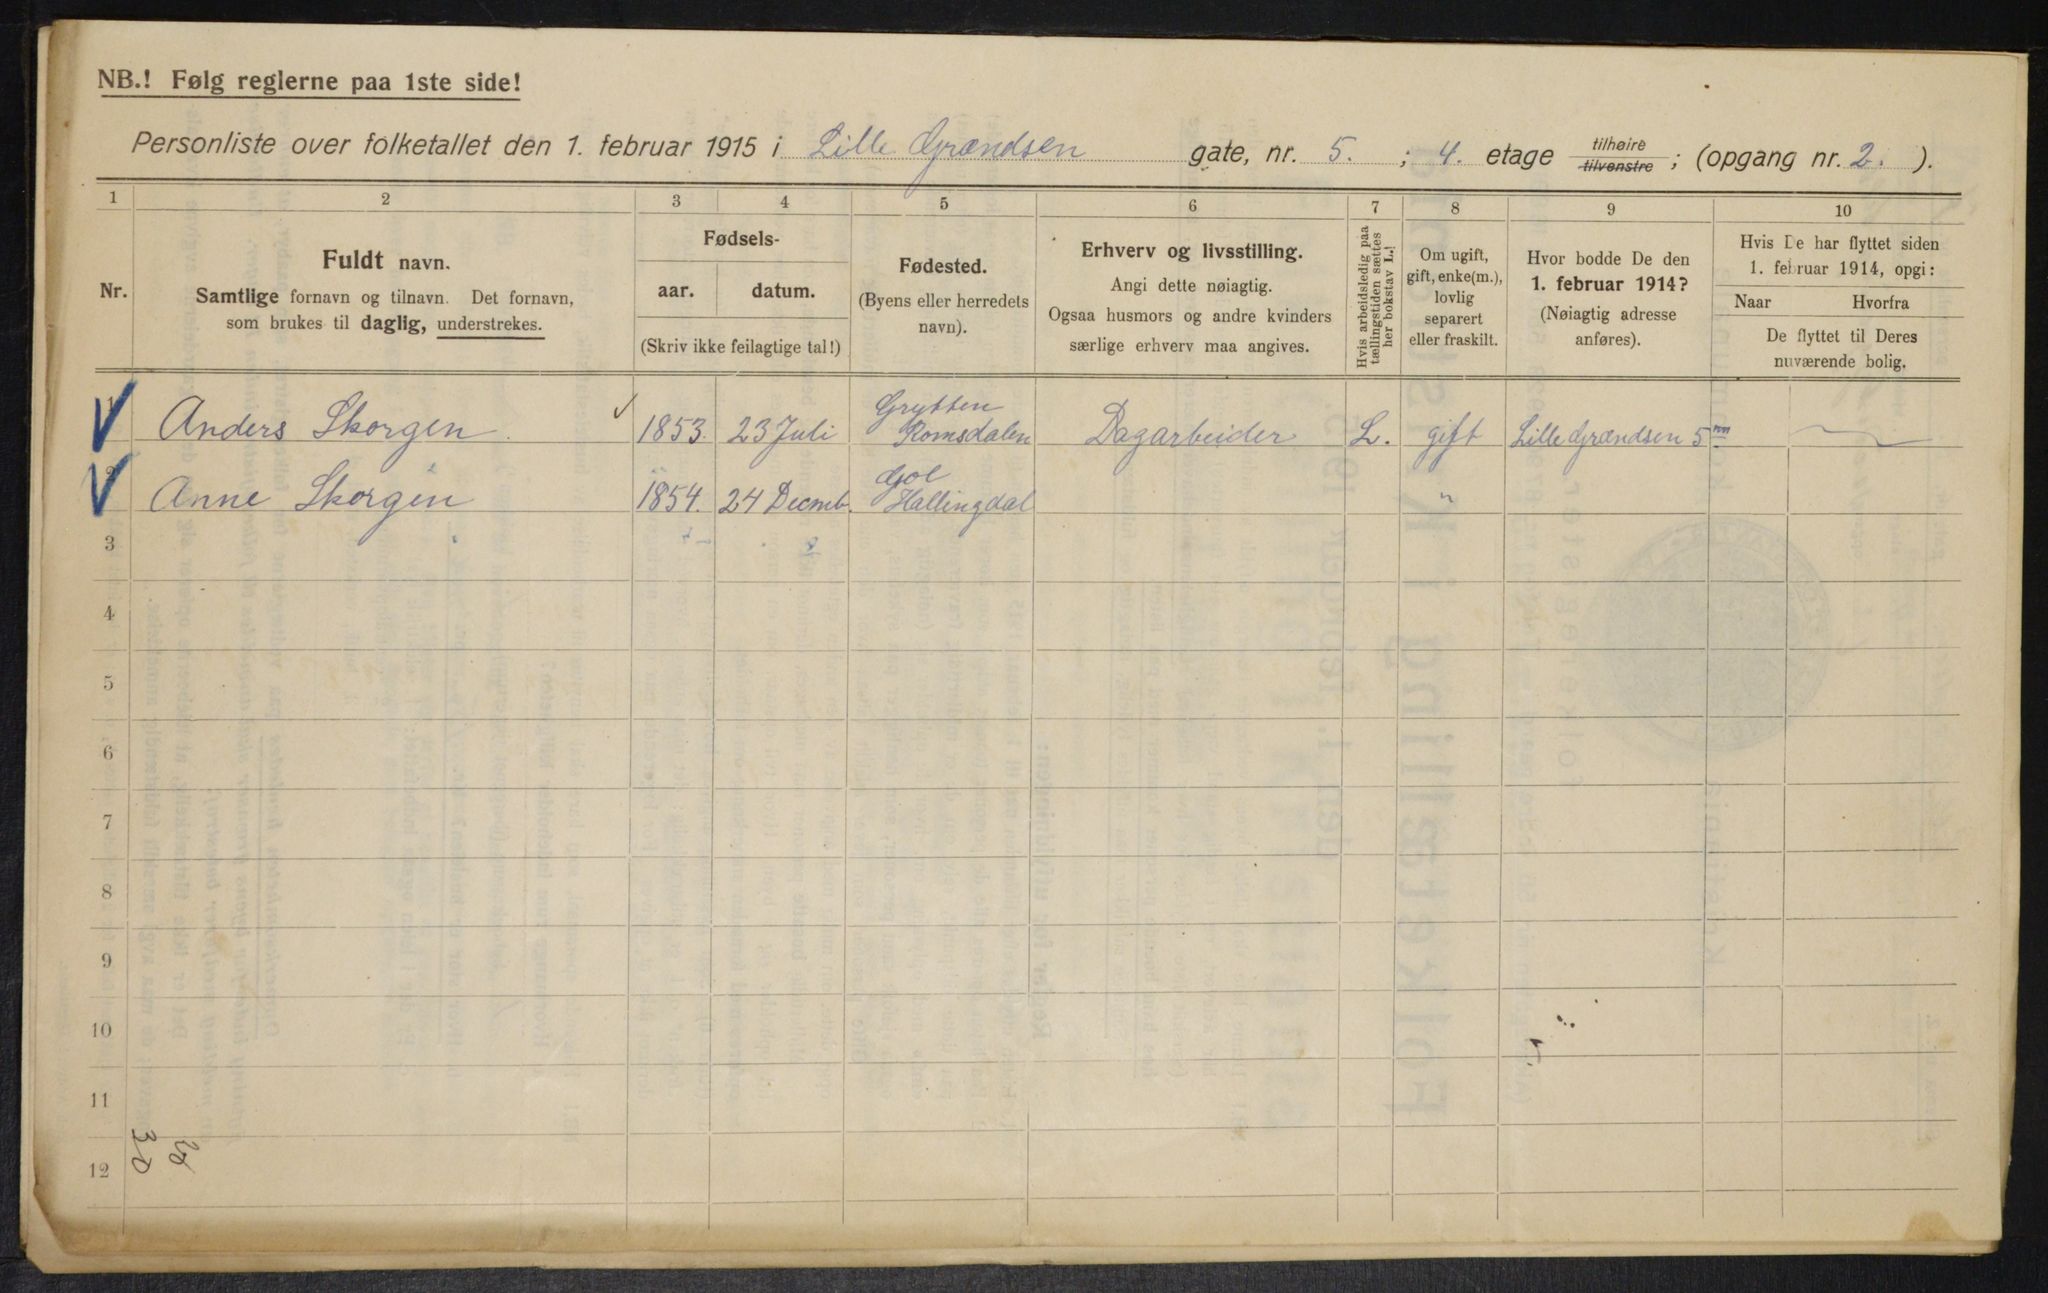 NB.! Følg reglerne paa 1ste side!
Personliste over folketallet den 1. februar 1915 i Lille Grændsen gate, nr. 5. ; 4. etage tilhøire tilvenstre ; (opgang nr. 2. ).
1 2 3 4 5 6 7 8 9 10
Nr.
Fuldt navn.
Samtlige fornavn og tilnavn. Det fornavn,
som brukes til daglig, understrekes.
Fødsels-
aar. datum.
(Skriv ikke feilagtige tal!)
Fødested.
(Byens eller herredets
navn).
Erhverv og livsstilling.
Angi dette nøiagtig.
Ogsaa husmors og andre kvinders
særlige erhverv maa angives.
Hvis arbeidsledig paa
tællingstiden sættes
her bokstav L!
Om ugift,
gift, enke(m.),
lovlig
separert
eller fraskilt.
Hvor bodde De den
1. februar 1914?
(Nøiagtig adresse
anføres).
Hvis De har flyttet siden
1. februar 1914, opgi:
Naar Hvorfra
De flyttet til Deres
nuværende bolig.
1 Anders Skorgen 1853. 23 Juli Grytten Romsdalen Dagarbeider L. gift Lille Grændsen 5
2 Anne Skorgen 1854. 24 Decmb. Gol Hallingdal "
3
4
5
6
7
8
9
10
11
12